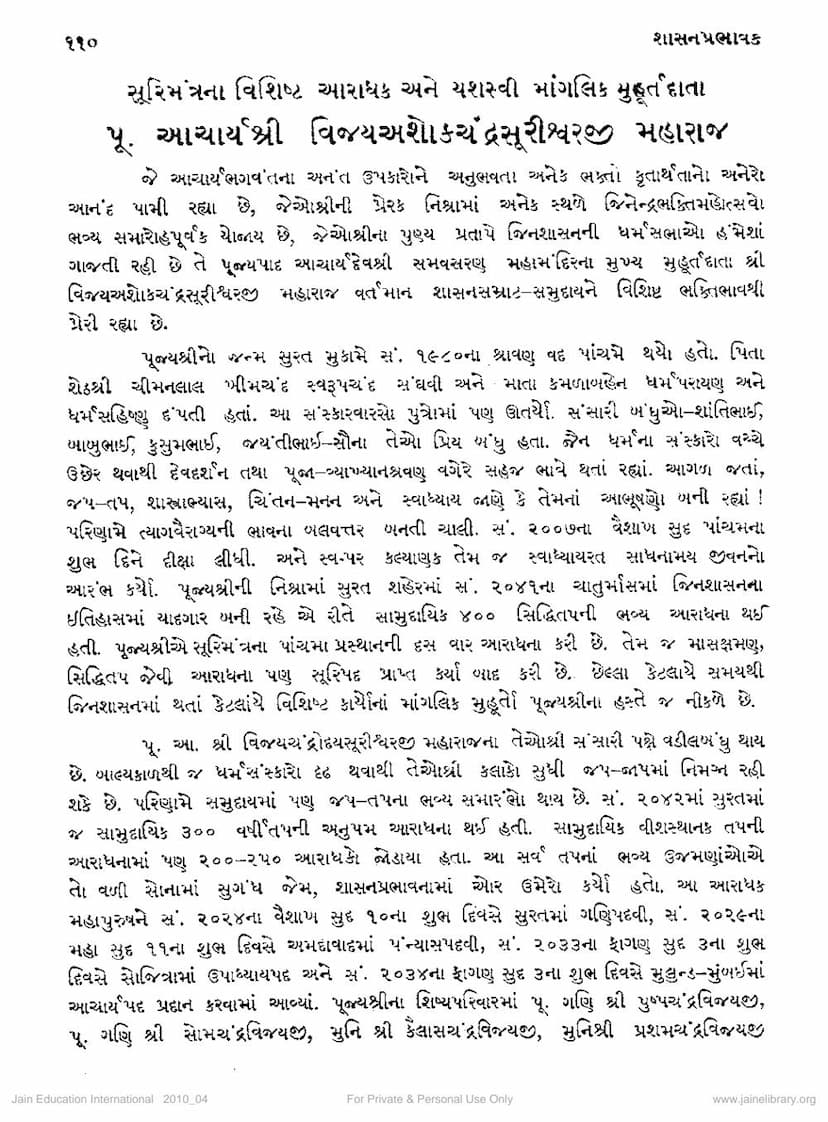 ૧૧૦ શાસનપ્રભાવક
સૂરિમંત્રના વિશિષ્ટ આરાધક અને યશસ્વી માંગલિક મુહૂર્તદાતા
પૂ. આચાર્યશ્રી વિજયઅશોકચંદ્રસૂરીશ્વરજી મહારાજ
જે આચાર્યભગવંતના અનંત ઉપકારોને અનુભવતા અનેક ભક્તો કૃતાર્થતાનો અનેરો
આનંદ પામી રહ્યા છે, જેઓશ્રીની પ્રેરક નિશ્રામાં અનેક સ્થળે જિનેન્દ્રભક્તિમહોત્સવો
ભવ્ય સમારોહપૂર્વક યોજાય છે, જેઓશ્રીના પુણ્ય પ્રતાપે જિનશાસનની ધર્મસભાઓ હંમેશાં
ગાજતી રહી છે તે પૂજ્યપાદ આચાર્યદેવશ્રી સમવસરણ મહામંદિરના મુખ્ય મુહૂર્તદાતા શ્રી
વિજયઅશોકચંદ્રસૂરીશ્વરજી મહારાજ વર્તમાન શાસનસમ્રાટ–સમુદાયને વિશિષ્ટ ભક્તિભાવથી
પ્રેરી રહ્યા છે.
પૂજ્યશ્રીનો જન્મ સુરત મુકામે સં. ૧૯૮૦ના શ્રાવણ વદ પાંચમે થયો હતો. પિતા
શેઠશ્રી ચીમનલાલ ખીમચંદ સ્વરૂપચંદ સંઘવી અને માતા કમળાબહેન ધર્મપરાયણ અને
ધર્મસહિષ્ણુ દંપતી હતાં. આ સંસ્કારવારસો પુત્રોમાં પણ ઊતર્યો. સંસારી બંધુઓ–શાંતિભાઈ,
બાબુભાઈ, કુસુમભાઈ, જયંતીભાઈ–સૌના તેઓ પ્રિય બંધુ હતા. જૈન ધર્મના સંસ્કારો વચ્ચે
ઉછેર થવાથી દેવદર્શન તથા પૂજા–વ્યાખ્યાનશ્રવણ વગેરે સહજ ભાવે થતાં રહ્યાં. આગળ જતાં,
જપ–તપ, શાસ્ત્રાભ્યાસ, ચિંતન–મનન અને સ્વાધ્યાય જાણે કે તેમનાં આભૂષણો બની રહ્યાં !
પરિણામે ત્યાગવૈરાગ્યની ભાવના બલવત્તર બનતી ચાલી. સં. ૨૦૦૭ના વૈશાખ સુદ પાંચમના
શુભ દિને દીક્ષા લીધી. અને સ્વ-પર કલ્યાણક તેમ જ સ્વાધ્યાયરત સાધનામય જીવનનો
આરંભ કર્યો. પૂજ્યશ્રીની નિશ્રામાં સુરત શહેરમાં સં. ૨૦૪૧ના ચાતુર્માસમાં જિનશાસનના
ઈતિહાસમાં યાદગાર બની રહે એ રીતે સામુદાયિક ૪૦૦ સિદ્ધિતપની ભવ્ય આરાધના થઈ
હતી. પૂજ્યશ્રીએ સૂરિમંત્રના પાંચમા પ્રસ્થાનની દસ વાર આરાધના કરી છે. તેમ જ માસક્ષમણ,
સિદ્ધિતપ જેવી આરાધના પણ સૂરિપદ પ્રાપ્ત કર્યા બાદ કરી છે. છેલ્લા કેટલાયે સમયથી
જિનશાસનમાં થતાં કેટલાંયે વિશિષ્ટ કાર્યોનાં માંગલિક મુહૂર્તો પૂજ્યશ્રીના હસ્તે જ નીકળે છે.
પૂ. આ. શ્રી વિજયચંદ્રોદયસૂરીશ્વરજી મહારાજના તેઓશ્રી સંસારી પક્ષે વડીલબંધુ થાય
છે. બાલ્યકાળથી જ ધર્મસંસ્કારો દૃઢ થવાથી તેઓશ્રી કલાકો સુધી જપ–જાપમાં નિમગ્ન રહી
શકે છે. પરિણામે સમુદાયમાં પણ જપ–તપના ભવ્ય સમારંભો થાય છે. સં. ૨૦૪૨માં સુરતમાં
જ સામુદાયિક ૩૦૦ વર્ષીતપની અનુપમ આરાધના થઈ હતી. સામુદાયિક વીશસ્થાનક તપની
આરાધનામાં પણ ૨૦૦–૨૫૦ આરાધકો જોડાયા હતા. આ સર્વ તપનાં ભવ્ય ઉજમણાંઓએ
તો વળી સોનામાં સુગંધ જેમ, શાસનપ્રભાવનામાં ઓર ઉમેરો કર્યો હતો. આ આરાધક
મહાપુરુષને સં. ૨૦૨૪ના વૈશાખ સુદ ૧૦ના શુભ દિવસે સુરતમાં ગણિપદવી, સં. ૨૦૨૯ના
મહા સુદ ૧૧ના શુભ દિવસે અમદાવાદમાં પંન્યાસપદવી, સં. ૨૦૩૩ના ફાગણ સુદ ૩ના શુભ
દિવસે સોજિત્રામાં ઉપાધ્યાયપદ અને સં. ૨૦૩૪ના ફાગણ સુદ ૩ના શુભ દિવસે મુલુન્ડ–મુંબઈમાં
આચાર્યપદ પ્રદાન કરવામાં આવ્યાં. પૂજ્યશ્રીના શિષ્યપરિવારમાં પૂ. ગણિ શ્રી પુષ્પચંદ્રવિજયજી,
પૂ. ગણિ શ્રી સોમચંદ્રવિજયજી, મુનિ શ્રી કૈલાસચંદ્રવિજયજી, મુનિશ્રી પ્રશમચંદ્રવિજયજી
Jain Education International 2010_04 For Private & Personal Use Only www.jainelibrary.org